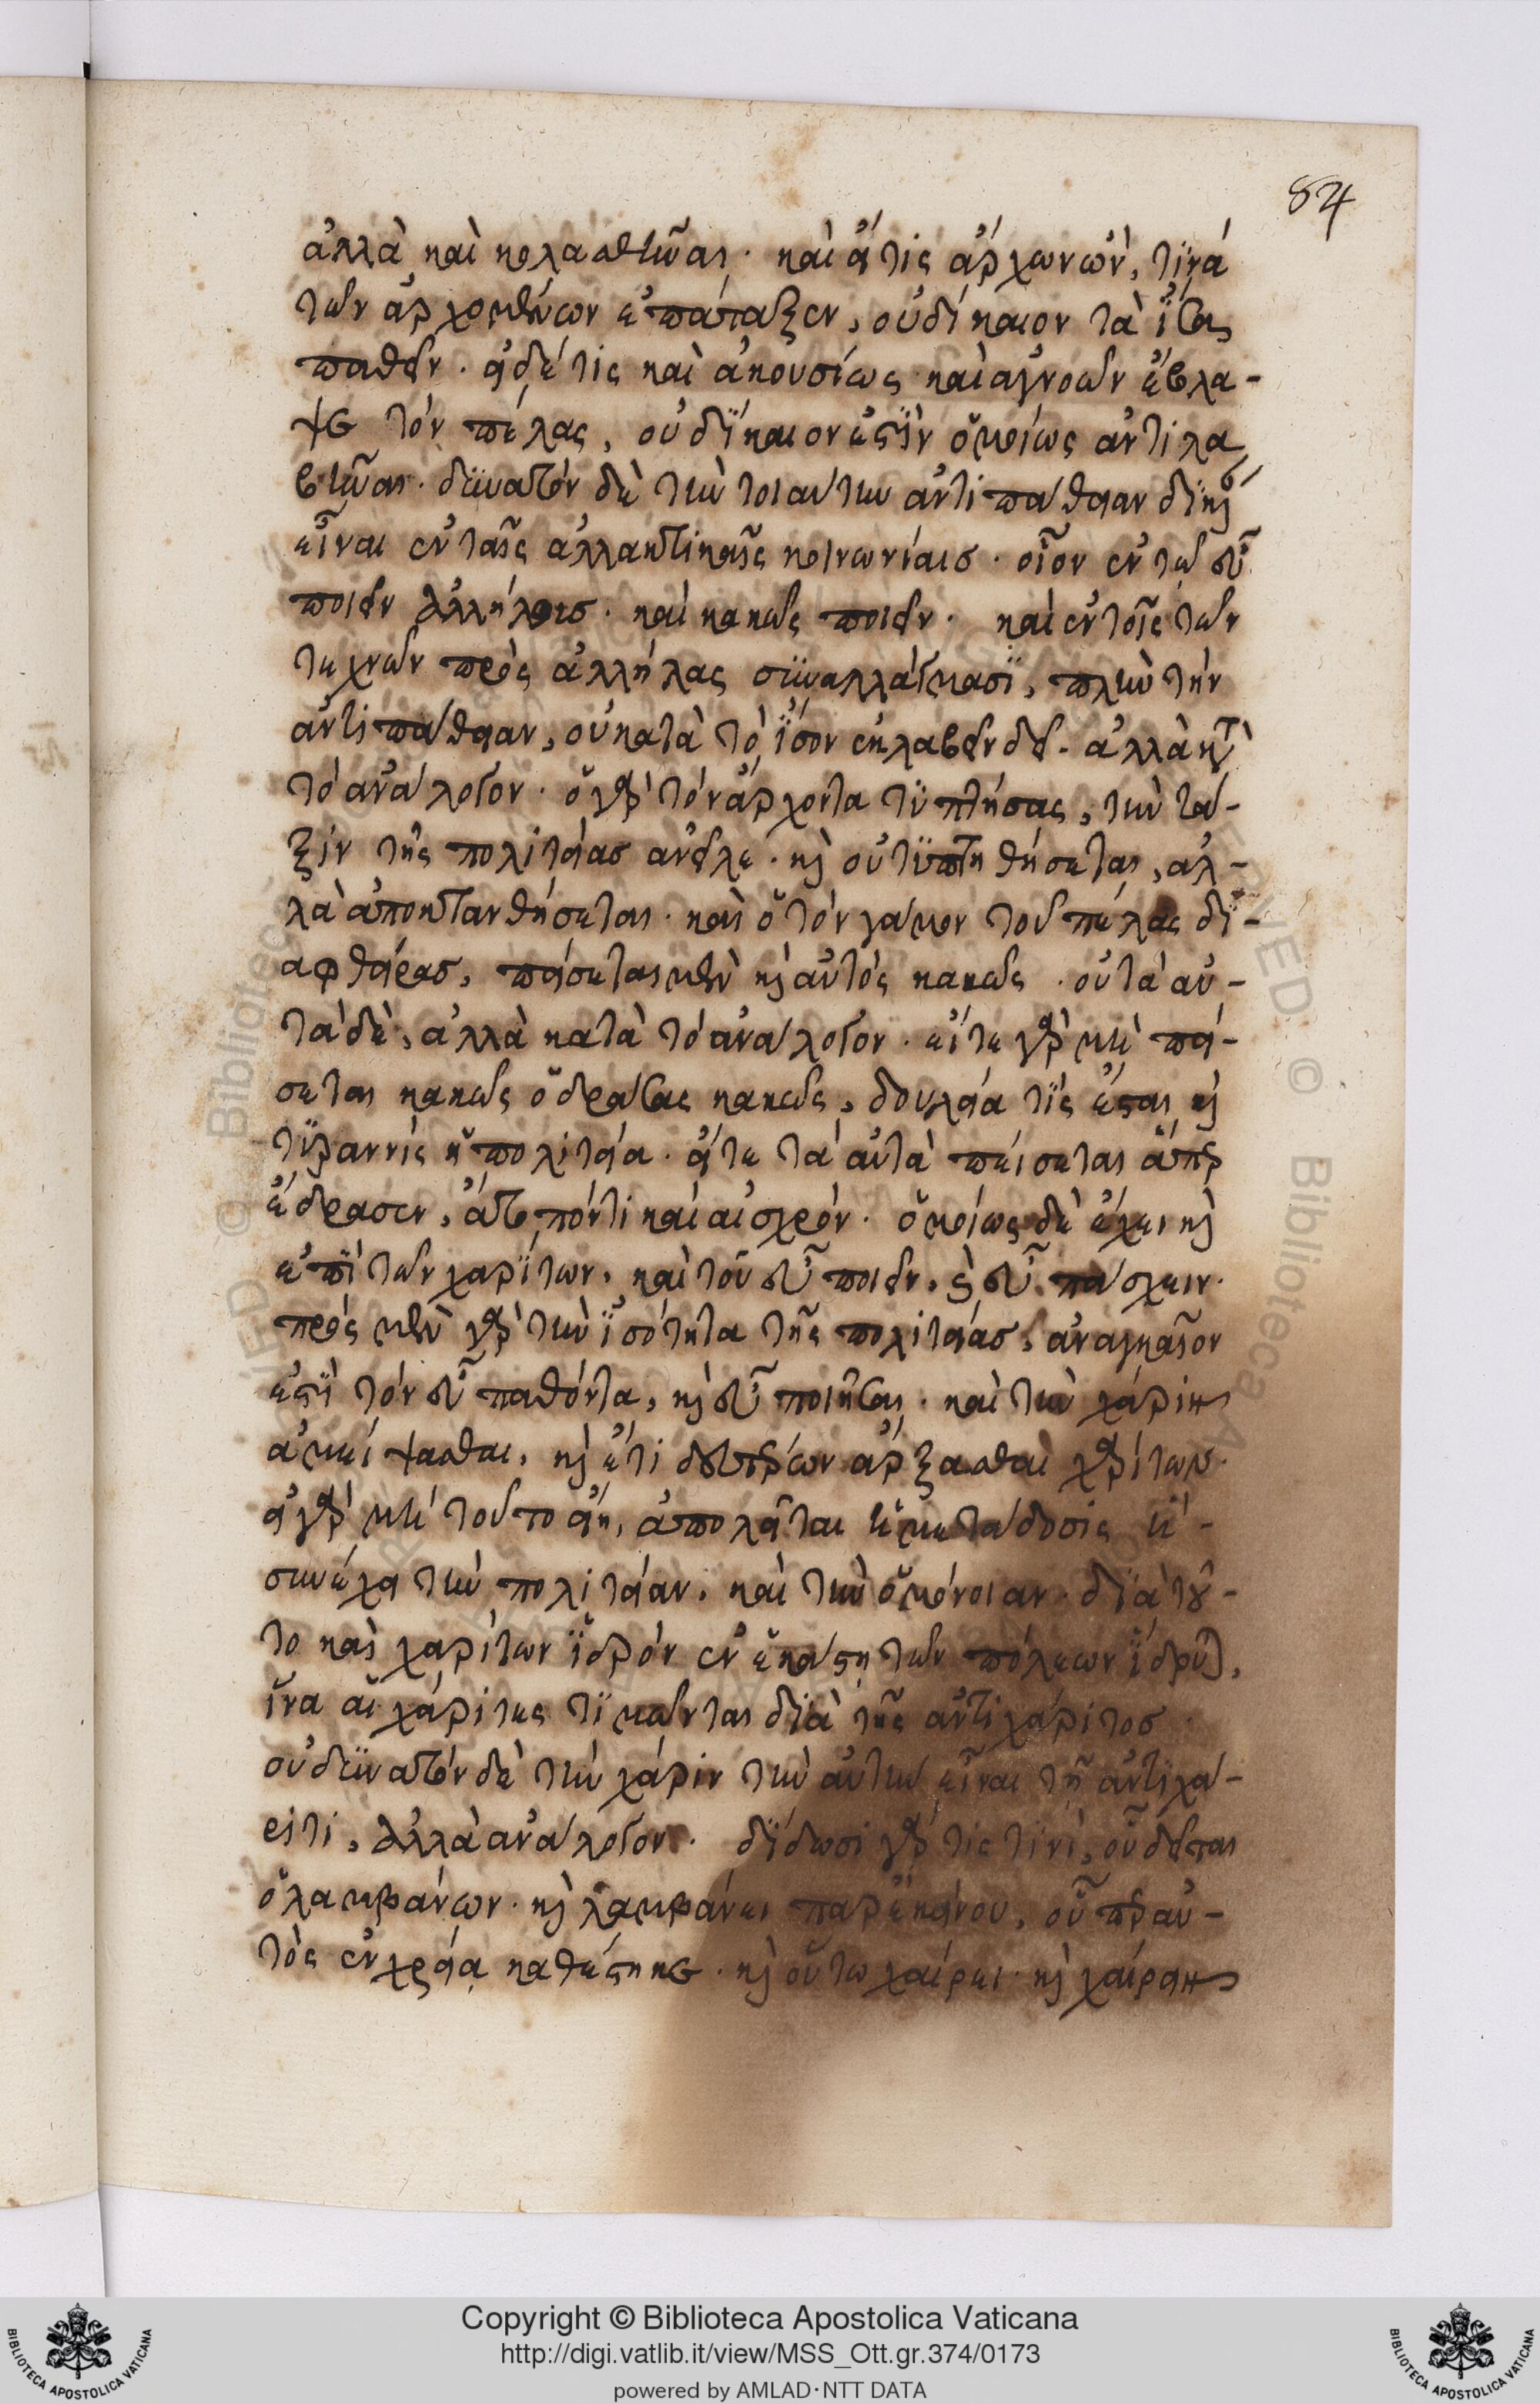 84
ἀλλὰ καὶ κολασθῆναι. καὶ εἴ τις ἄρχων ὢν, τινά
τῶν ἀρχομένων ἐπάταξεν, οὐ δίκαιον τὰ ἴσα
παθεῖν. εἰ δέ τις καὶ ἀκουσίως καὶ ἀγνοῶν ἔβλα-
ψε τὸν πέλας, οὐ δίκαιον ἐστὶν ὁμοίως ἀντιλα
βῆναι. δυνατὸν δὲ τὴν τοιαύτην ἀντιπάθειαν δίκην
εἶναι ἐν ταῖς ἀλλακτικαῖς κοινωνίαις. οἷον ἐν τῷ εὖ
ποιεῖν ἀλλήλοις. καὶ κακῶς ποιεῖν. καὶ ἐν τοῖς τῶν
τεχνῶν πρὸς ἀλλήλας συναλλάγμασι, πλὴν τὴν
ἀντιπάθειαν, οὐ κατὰ τὸ ἴσον ἐκλαβεῖν δεῖ. ἀλλὰ κατὰ
τὸ ἀνάλογον. ὁ γὰρ τὸν ἄρχοντα τυπτήσας, τὴν τά-
ξιν τῆς πολιτείας ἀνεῖλε. καὶ οὐ τυπτηθήσεται, ἀλ-
λὰ ἀποκτανθήσεται. καὶ ὁ τὸν γάμον τοῦ πέλας δι-
αφθείρας, πείσεται μὲν καὶ αὐτὸς κακῶς. οὐ τὰ αὐ-
τὰ δὲ, ἀλλὰ κατὰ τὸ ἀνάλογον. εἴτε γὰρ μὴ πεί-
σεται κακῶς ὁ δράσας κακῶς, δουλεία τίς ἔσται καὶ
τυραννὶς ἡ πολιτεία. εἴτε τὰ αὐτὰ πείσεται ἅπερ
ἔδρασεν, ἄτοπόν τι καὶ αἰσχρόν. ὁμοίως δὲ ἔχει καὶ
ἐπὶ τῶν χαρίτων, καὶ τοῦ εὖ ποιεῖν, καὶ εὖ πάσχειν.
πρὸς μὲν γὰρ τὴν ἰσότητα τῆς πολιτείας, ἀναγκαῖον
ἐστὶ τὸν εὖ παθόντα, καὶ εὖ ποιῆσαι. καὶ τὴν χάριν
ἀμείψασθαι, καὶ ἔτι δευτέρων ἄρξασθαι χαρίτων.
εἰ γὰρ μὴ τοῦτο εἴη, ἀπολεῖται ἡ μετάδοσις ἡ
συνέχει τὴν πολιτείαν, καὶ τὴν ὁμόνοιαν. διὰ τοῦ-
το καὶ χαρίτων ἱερὸν ἐν ἑκάστῃ τῶν πόλεων ἵδρυται,
ἵνα αἱ χάριτες τιμῶνται διὰ τῆς ἀντιχάριτος.
οὐ δυνατὸν δὲ τὴν χάριν τὴν αὐτὴν εἶναι τῇ ἀντιχά-
ριτι, ἀλλὰ ἀνάλογον. δίδωσι γάρ τις τινὶ, οὗ δεῖται
ὁ λαμβάνων. καὶ λαμβάνει παρ' ἐκείνου, οὗπερ αὐ-
τὸς ἐν χρείᾳ καθέστηκε. καὶ οὕτω χαίρει. καὶ χαίρειν
Copyright © Biblioteca Apostolica Vaticana
http://digi.vatlib.it/view/MSS_Ott.gr.374/0173
powered by AMLAD·NTT DATA
BIBLIOTECA APOSTOLICA VATICANA
BIBLIOTECA APOSTOLICA VATICANA